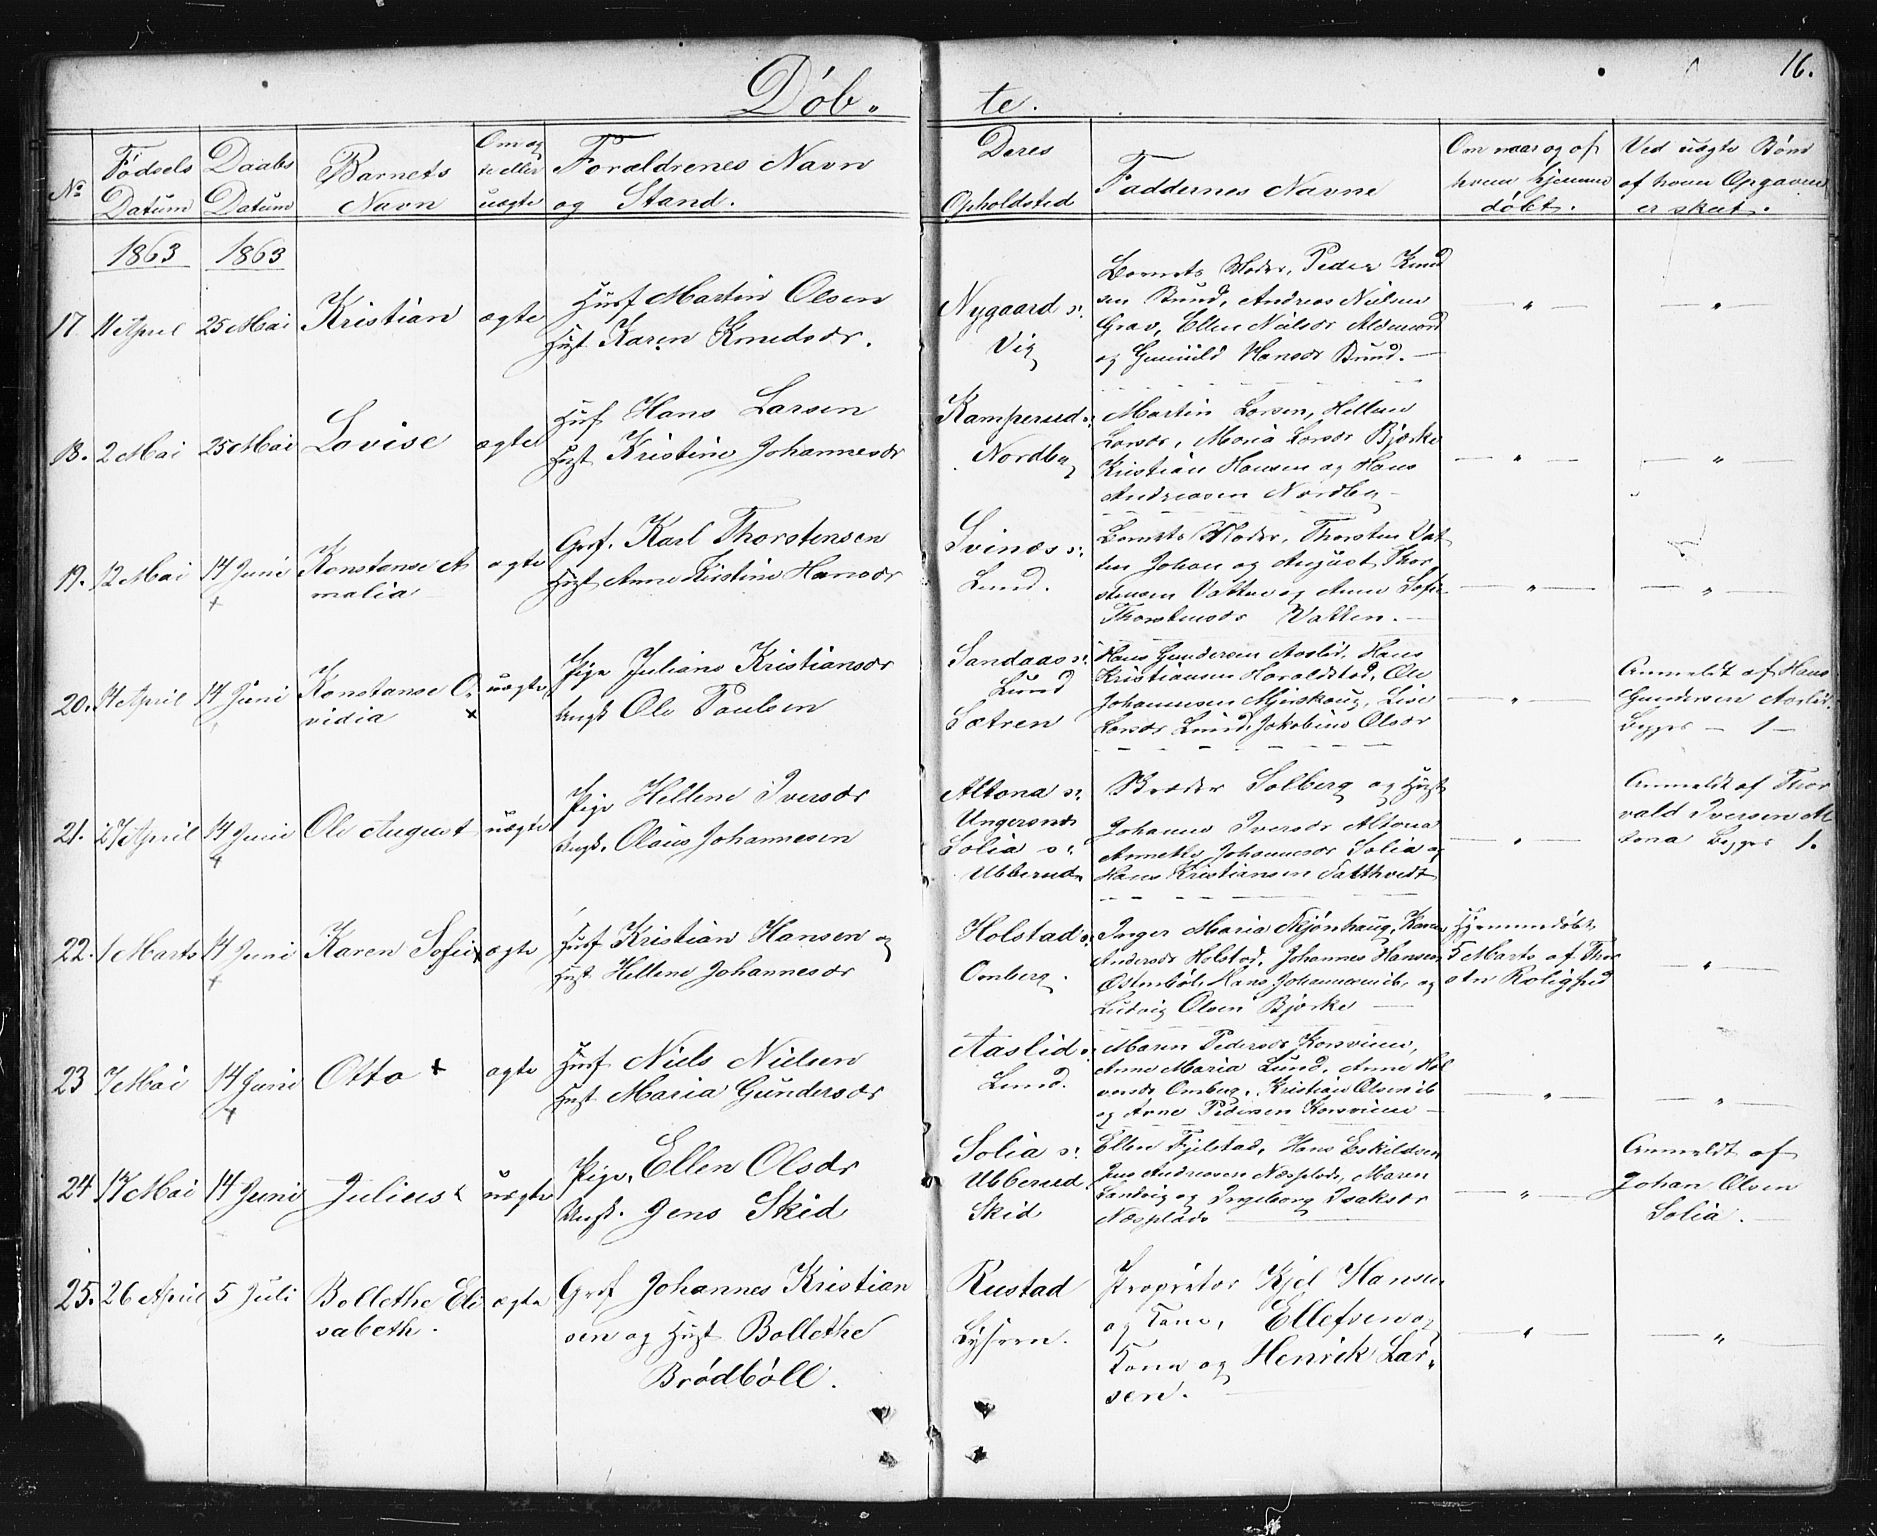 16.
Døb- te.
No
Fødsels Datum
Daabs Datum
Barnets Navn
Om æg te eller uægte
Forældrenes Navn og Stand.
Deres Opholdsted
Faddernes Navne
Om naar og af hvem hjemme døbt.
Ved uægte Børn af hvem Opgaven er skeet.
1863 1863
17. 11 April 25 Mai Kristian ægte
Husf Martin Olsen
Hust Karen Knudsdr.
Nygaard s:
Vig
Barnets Moder, Peder Knud
sen Bund, Andreas Nielsen
Grav, Ellen Nielsdr
og Gunild Hansdr Bund. —
— " — — " —
18. 2 Mai 25 Mai Lovise ægte
Husf Hans Larsen
Hust Kristine Johannesdr
Kamperud s:
Nordby
Martin Larsen, Hellene
Larsdr, Maria Larsdr Bjerke
Kristian Hansen og Hans
Andreasen Nordby —
— " — — " —
19. 12 Mai 14 Juni Konstanse A
malia
ægte
Grf. Karl Thorstensen
Hust Anne Kirstine Hansdr
Svinæs s:
Lund.
Barnets Moder, Thorsten Vat
ten Johan og August Thor
stensen Vatten og Anne Sofie
Thorstensdr Vatten. —
— " — — " —
20. 14 April 14 Juni Konstanse O
vidia ×
uægte
Pige Juliane Kristiansdr
Ungk Ole Paulsen
Sandaas s:
Lund
Sætren
Hans Gundersen Aaslid, Hans
Kristiansen Haraldstad, Ole
Johannesen Mjerskoug, Lise
Larsdr Lund, Jakobine Olsdr
— " —
Anmeldt af Hans
Gundersen Aaslid.
Begges — 1 —
21. 27 April 14 Juni Ole August uægte
Pige Hellene Iversdr
Ungk. Olaus Johannesen
Altona s:
Ungersnes
Solia s:
Ubberud.
Brødr Solberg og Hust
Johanne Iversdr Altona
Annethe Johannesdr Solia og
Hans Kristiansen Talthvedt
— " —
Anmeldt af Thor
vald Iversen Al
tona Begges 1.
22. 1 Marts 14 Juni Karen Sofie × ægte
Husf Kristian Hansen og
Hust Hellene Johannesdr
Holstad s:
Omberg.
Inger Maria Mjønhaug, Karen
Andersdr Holstad, Johannes Hansen
Østenbøl, Hans Johannesen ib. og
Ludvig Olsen Bjerke —
Hjemmedøbt
5 Marts af Thor
sten Rolighed
— " —
23 7 Mai 14 Juni Otto × ægte
Husf Niels Nielsen
Hust Maria Gundersdr
Aaslid s:
Lund.
Maren Pedersdr Korsviien,
Anne Maria Lund, Anne Hal
vorsdr Omberg, Kristian Olsen ib
og Arne Pedersen Korsviien —
— " — — " —
24. 17 Mai 14 Juni Julius × uægte
Pige, Ellen Olsdr
Ungk. Jens Skid
Solia s:
Ubberud.
Skid
Ellen Fjelstad, Hans Eskildsen
Jens Andreasen Næsplads, Maren
Sandvig og Ingeborg Isaksdr
Næsplads —
— " —
Anmeldt af
Johan Olsen
Solia. —
25. 26 April 5 Juli Bollethe Eli
sabeth.
ægte
Grf Johannes Kristian
sen og Hust Bollethe
Brødbøll.
Rustad
Lysern.
Proprietær Kjel Hansen
og Kone, Ellefsen og
Kone og Henrik Lar-
sen.
— " — — " —